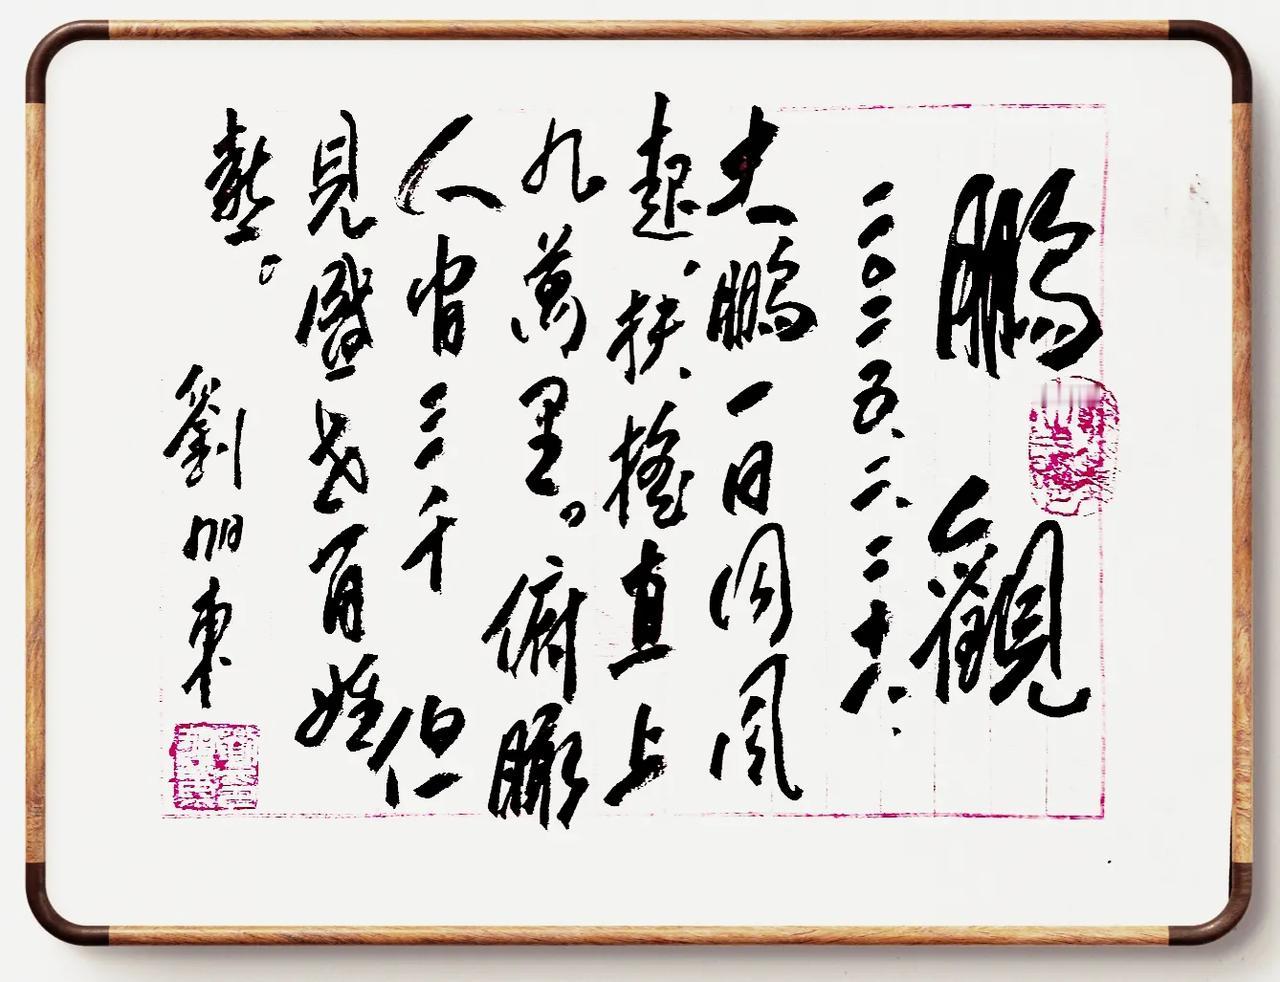 鹏觀
二〇二五、二、二十六、
大鵬一日同風
起、扶搖直上
九萬里。俯瞰
人间三千
但
見盛世百姓
歡。
劉旭東